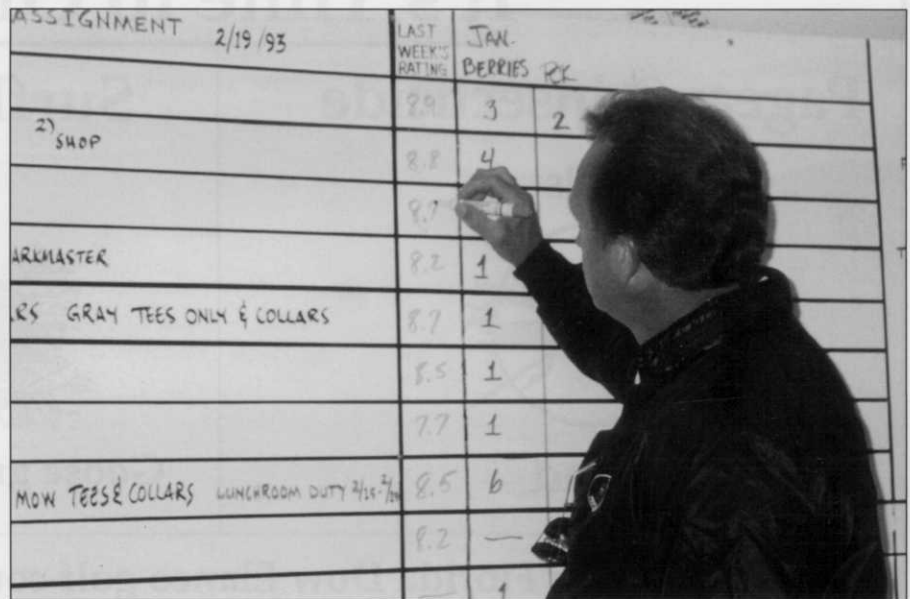 ASSIGNMENT 2/19/93 LAST WEEK'S RATING JAN. BERRIES
8.9 3 2
2) SHOP 8.8 4
8.7
ARKMASTER 8.2 1
RS GRAY TEES ONLY & COLLARS 8.7 1
8.5 1
7.7 1
MOW TEES & COLLARS LUNCHROOM DUTY 8.5 6
8.2 —
— 1